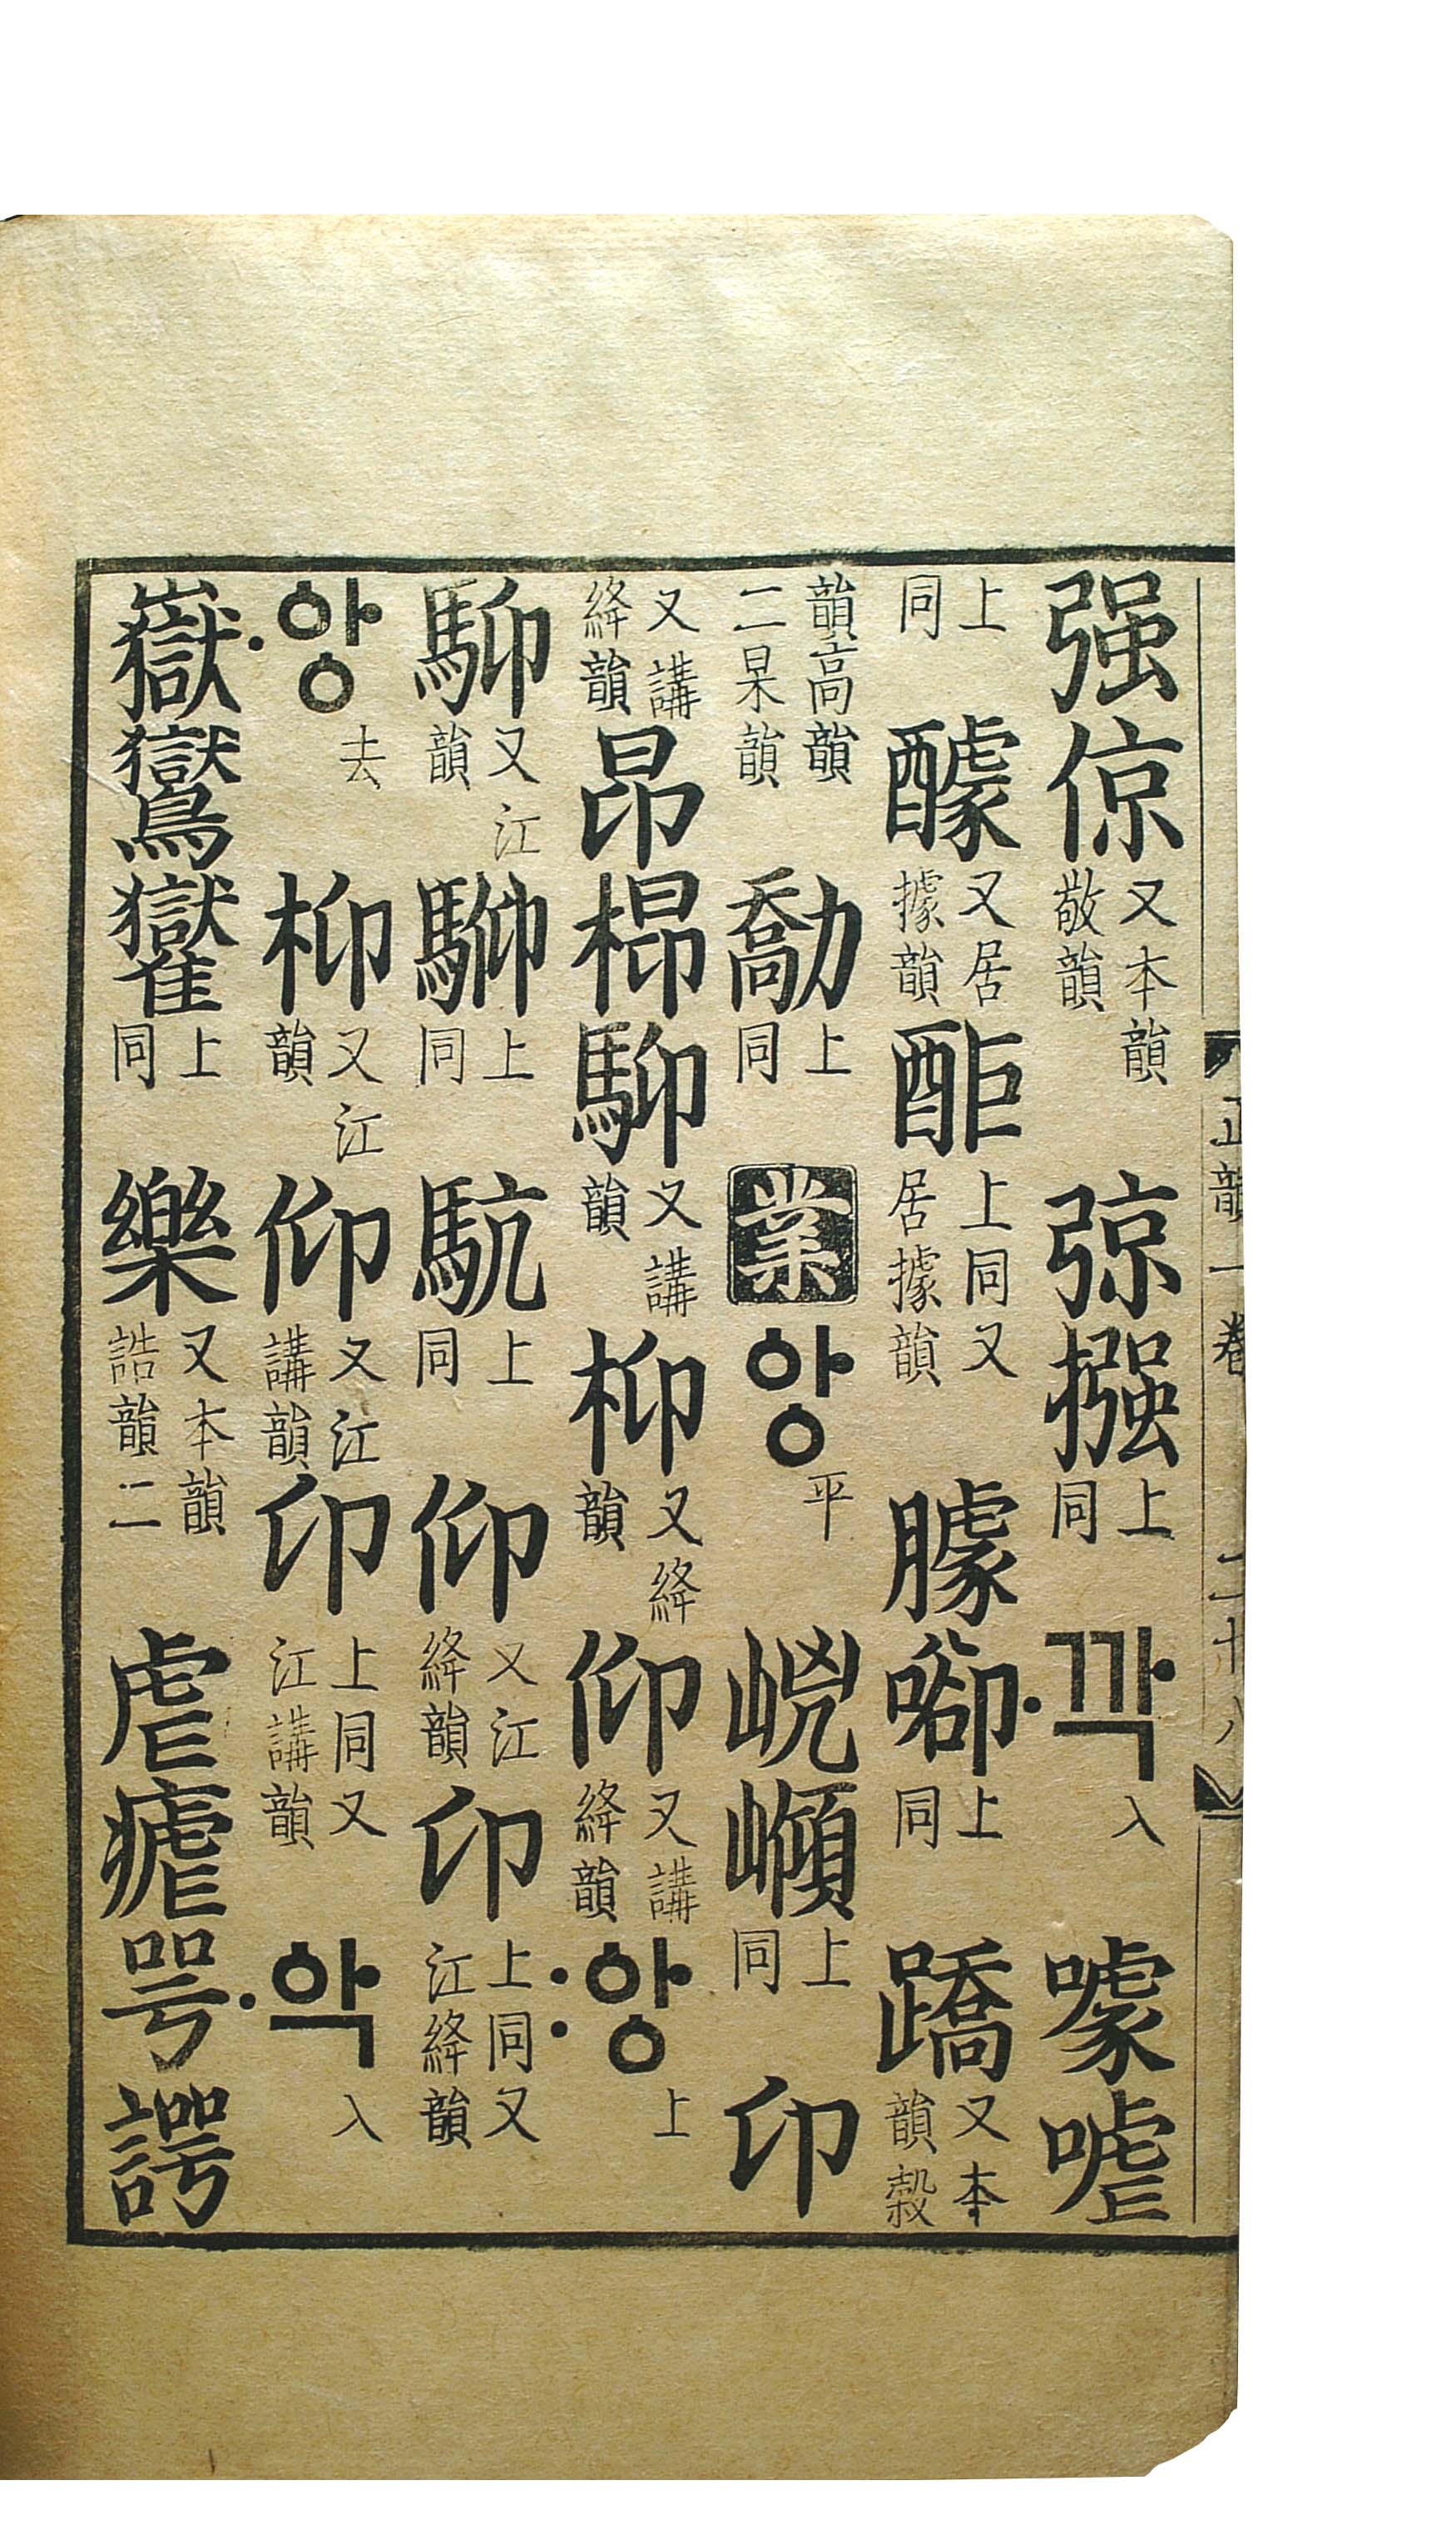 正韻一卷 二十八
强倞又本韻敬韻弶摾上同·깍入噱㖸
上同醵又居據韻上同又居據韻臄上同蹻又本韻穀
韻高韻二杲韻勪上同業ᅌᅡᇰ平上同卬
又講絳韻昂䭹又講韻枊又絳韻仰又講絳韻:ᅌᅡᇰ上
䭹又江韻上同上同仰又江絳韻卬上同又江絳韻
·ᅌᅡᇰ去枊又江韻仰又江講韻卬上同又江講韻·ᅌᅡᆨ入
嶽鸑上同樂又本韻誥韻二虐瘧咢諤